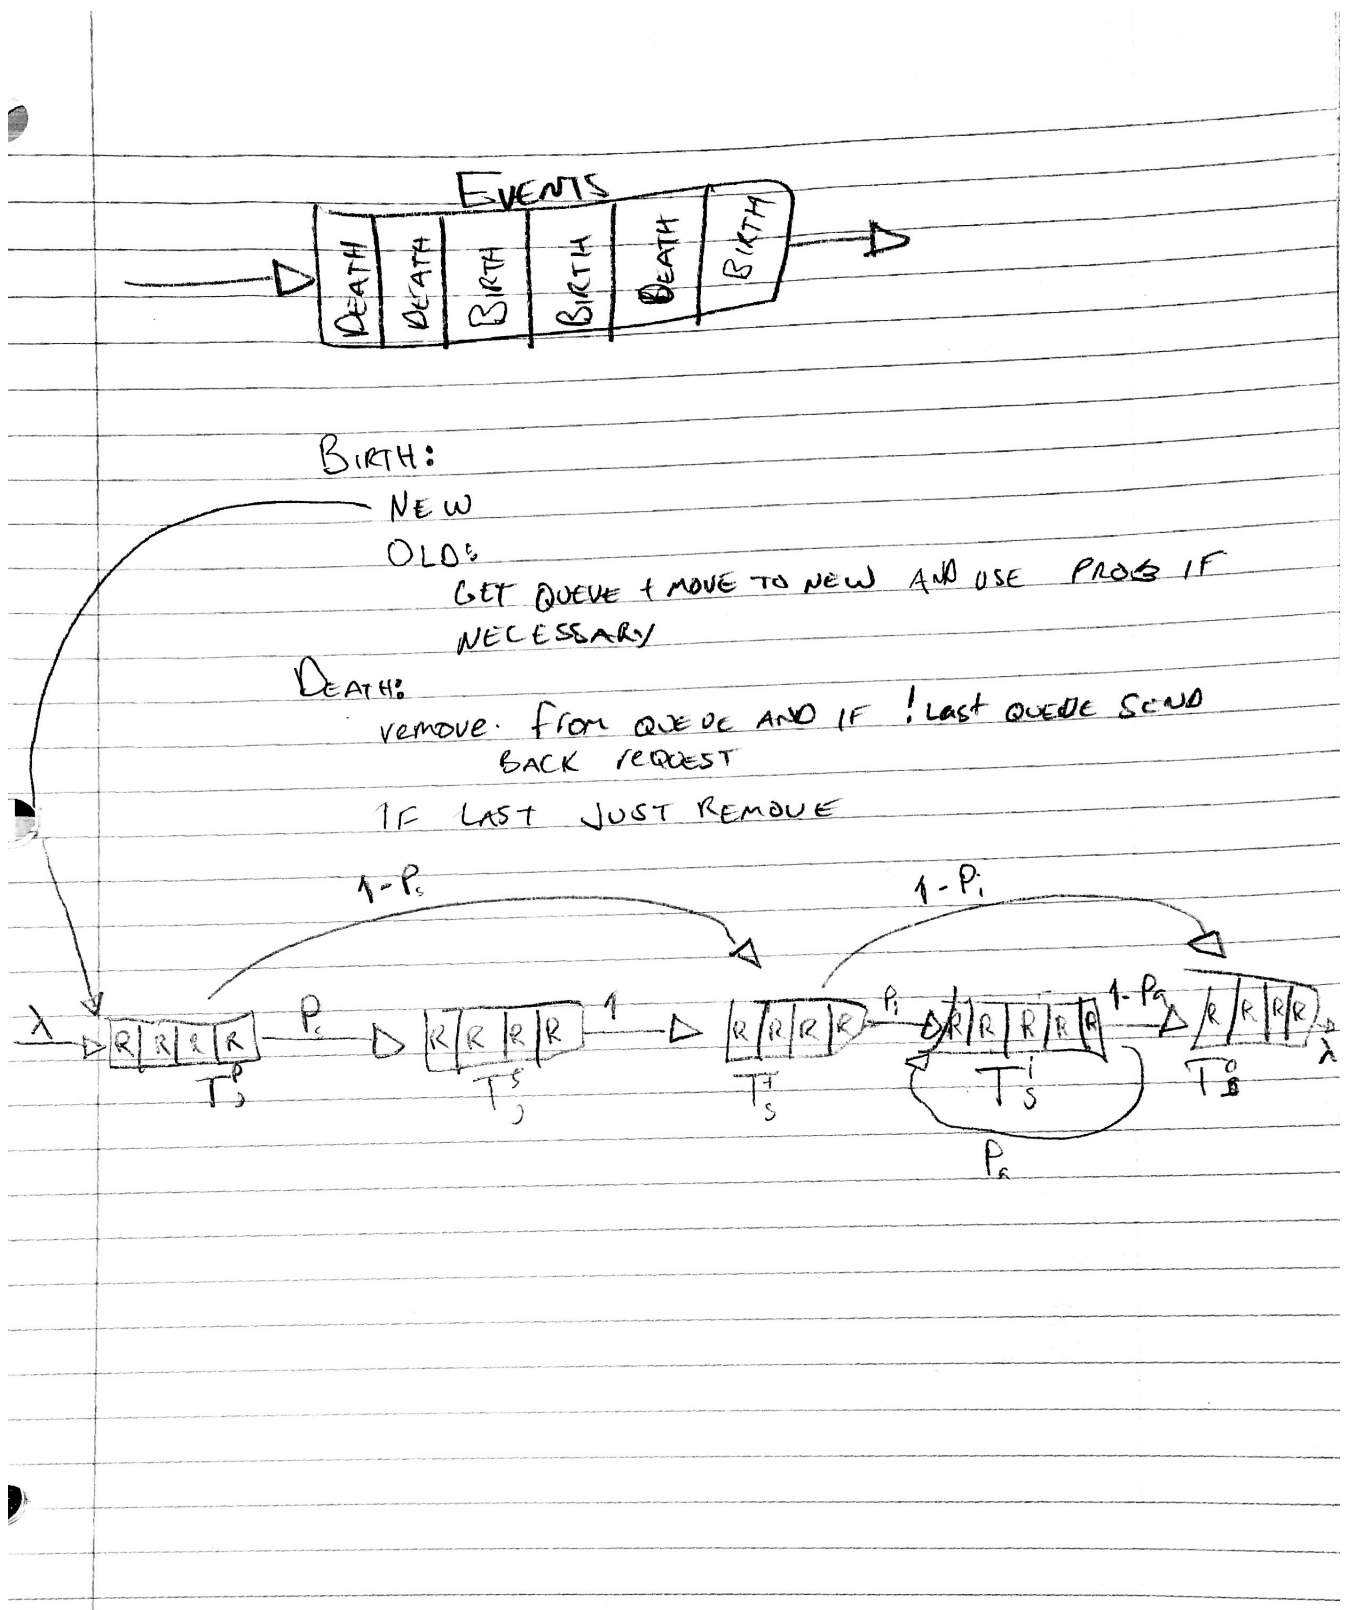 EVENTS
DEATH DEATH BIRTH BIRTH DEATH BIRTH
BIRTH:
NEW
OLD:
GET QUEUE + MOVE TO NEW AND USE PROB IF
NECESSARY
DEATH:
remove. from QUEUE AND IF ! Last QUEUE SEND
BACK reQUEST
IF LAST JUST REMOVE
1-Ps 1-Pi
λ R R R R Ps R R R R 1 R R R R Pi R R R R R 1-Pa R R R R λ
Pa